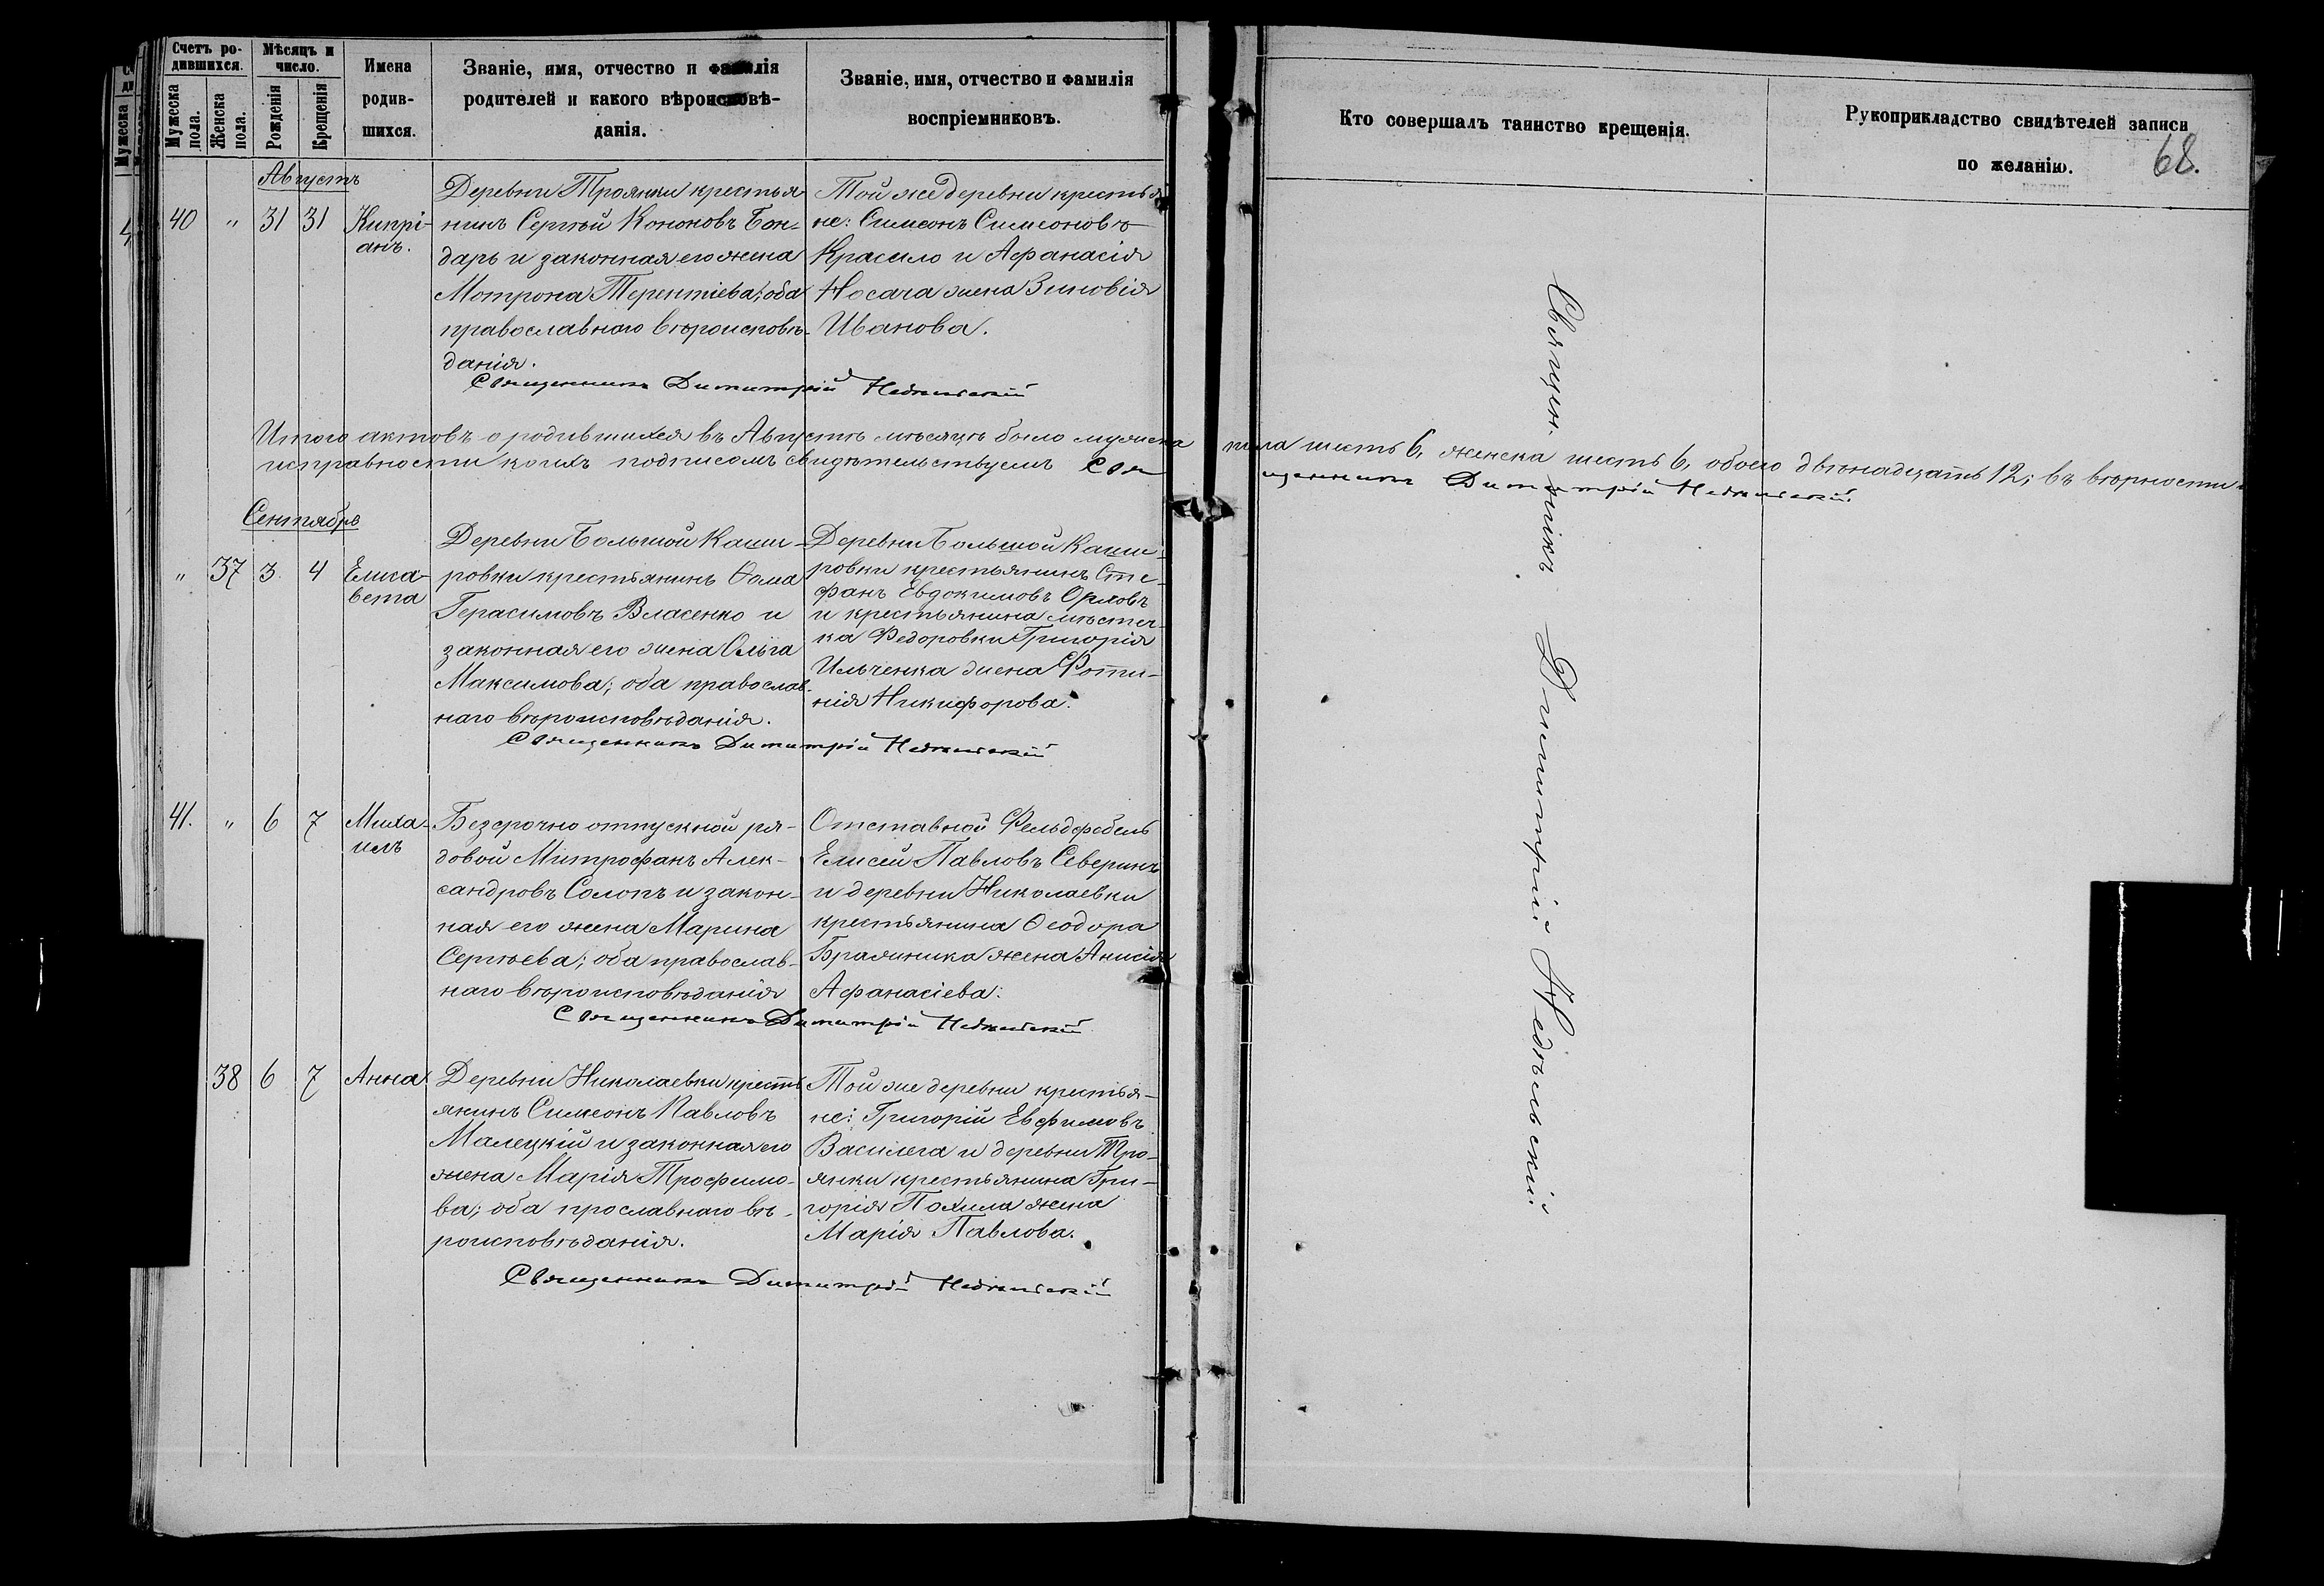 Счетъ ро-
дившихся.
Мужеска
пола.
Женска
пола.
Мѣсяцъ и
число.
Рожденія
Крещенія
Имена
родив-
шихся.
Званіе, имя, отчество и фамилія
родителей и какого вѣроисповѣ-
данія.
Званіе, имя, отчество и фамилія
воспріемниковъ.
Кто совершалъ таинство крещенія.
Рукоприкладство свидѣтелей записи
по желанію.
68.
Августъ
40 " 31 31 Кипрі-
анъ.
Деревни Троянки крестья
нинъ Сергѣй Кононовъ Бон-
дарь и законная его жена
Мотрона Терентіева; оба
православнаго вѣроисповѣ-
данія.
Той же деревни крестья
не: Симеонъ Симеоновъ
Красило и Афанасія
Носача жена Зиновія
Иванова.
Священникъ Димитрій Недѣльскій
Итого актовъ о родившихся въ Августѣ мѣсяцѣ было мужеска пола шесть 6, женска шесть 6, обоего двѣнадцать 12; въ вѣрности и
исправности коихъ подписомъ свидѣтельствуемъ Священникъ Димитрій Недѣльскій.
Сентябрь
" 37 3 4 Елиса-
вета
Деревни Большой Каши-
ровки крестьянинъ Ѳома
Герасимовъ Власенко и
законная его жена Ольга
Максимова; оба православ-
наго вѣроисповѣданія.
Деревни Большой Каши-
ровки крестьянинъ Сте-
фанъ Евдокимовъ Орловъ
и крестьянина мѣстеч-
ка Федоровки Григорія
Ильченка жена Фоти-
нія Никифорова.
Священникъ Димитрій Недѣльскій
41. " 6 7 Миха-
илъ
Безсрочно отпускной ря-
довой Митрофанъ Алек-
сандровъ Солопъ и закон-
ная его жена Марина
Сергѣева; оба православ-
наго вѣроисповѣданія
Отставной Фельдфебель
Елисей Павловъ Северинъ
и деревни Николаевки
крестьянина Ѳеодора
Бражника жена Анисія
Афанасіева.
Священникъ Димитрій Недѣльскій
38 6 7 Анна
Деревни Николаевки кресть
янинъ Симеонъ Павловъ
Малецкій и законная его
жена Марія Трофимо-
ва; оба прославнаго вѣ-
роисповѣданія.
Той же деревни крестья-
не: Григорій Евфимовъ
Василега и деревни Тро-
янки крестьянина Гри-
горія Похила жена
Марія Павлова.
Священникъ Димитрій Недѣльскій
Священникъ Димитрій Недѣльскій